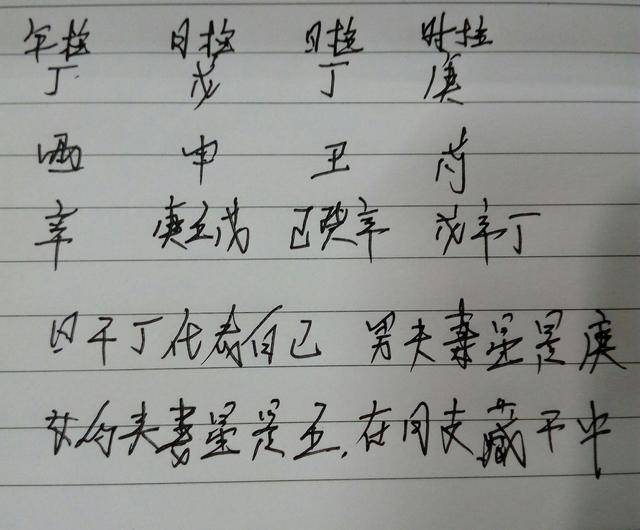 年柱 月柱 日柱 时柱
丁 戊 丁 庚
酉 申 丑 戌
辛 庚壬戊 己癸辛 戊辛丁
日干丁代表自己 男夫妻星是庚
女的夫妻星是壬,在月支藏干中